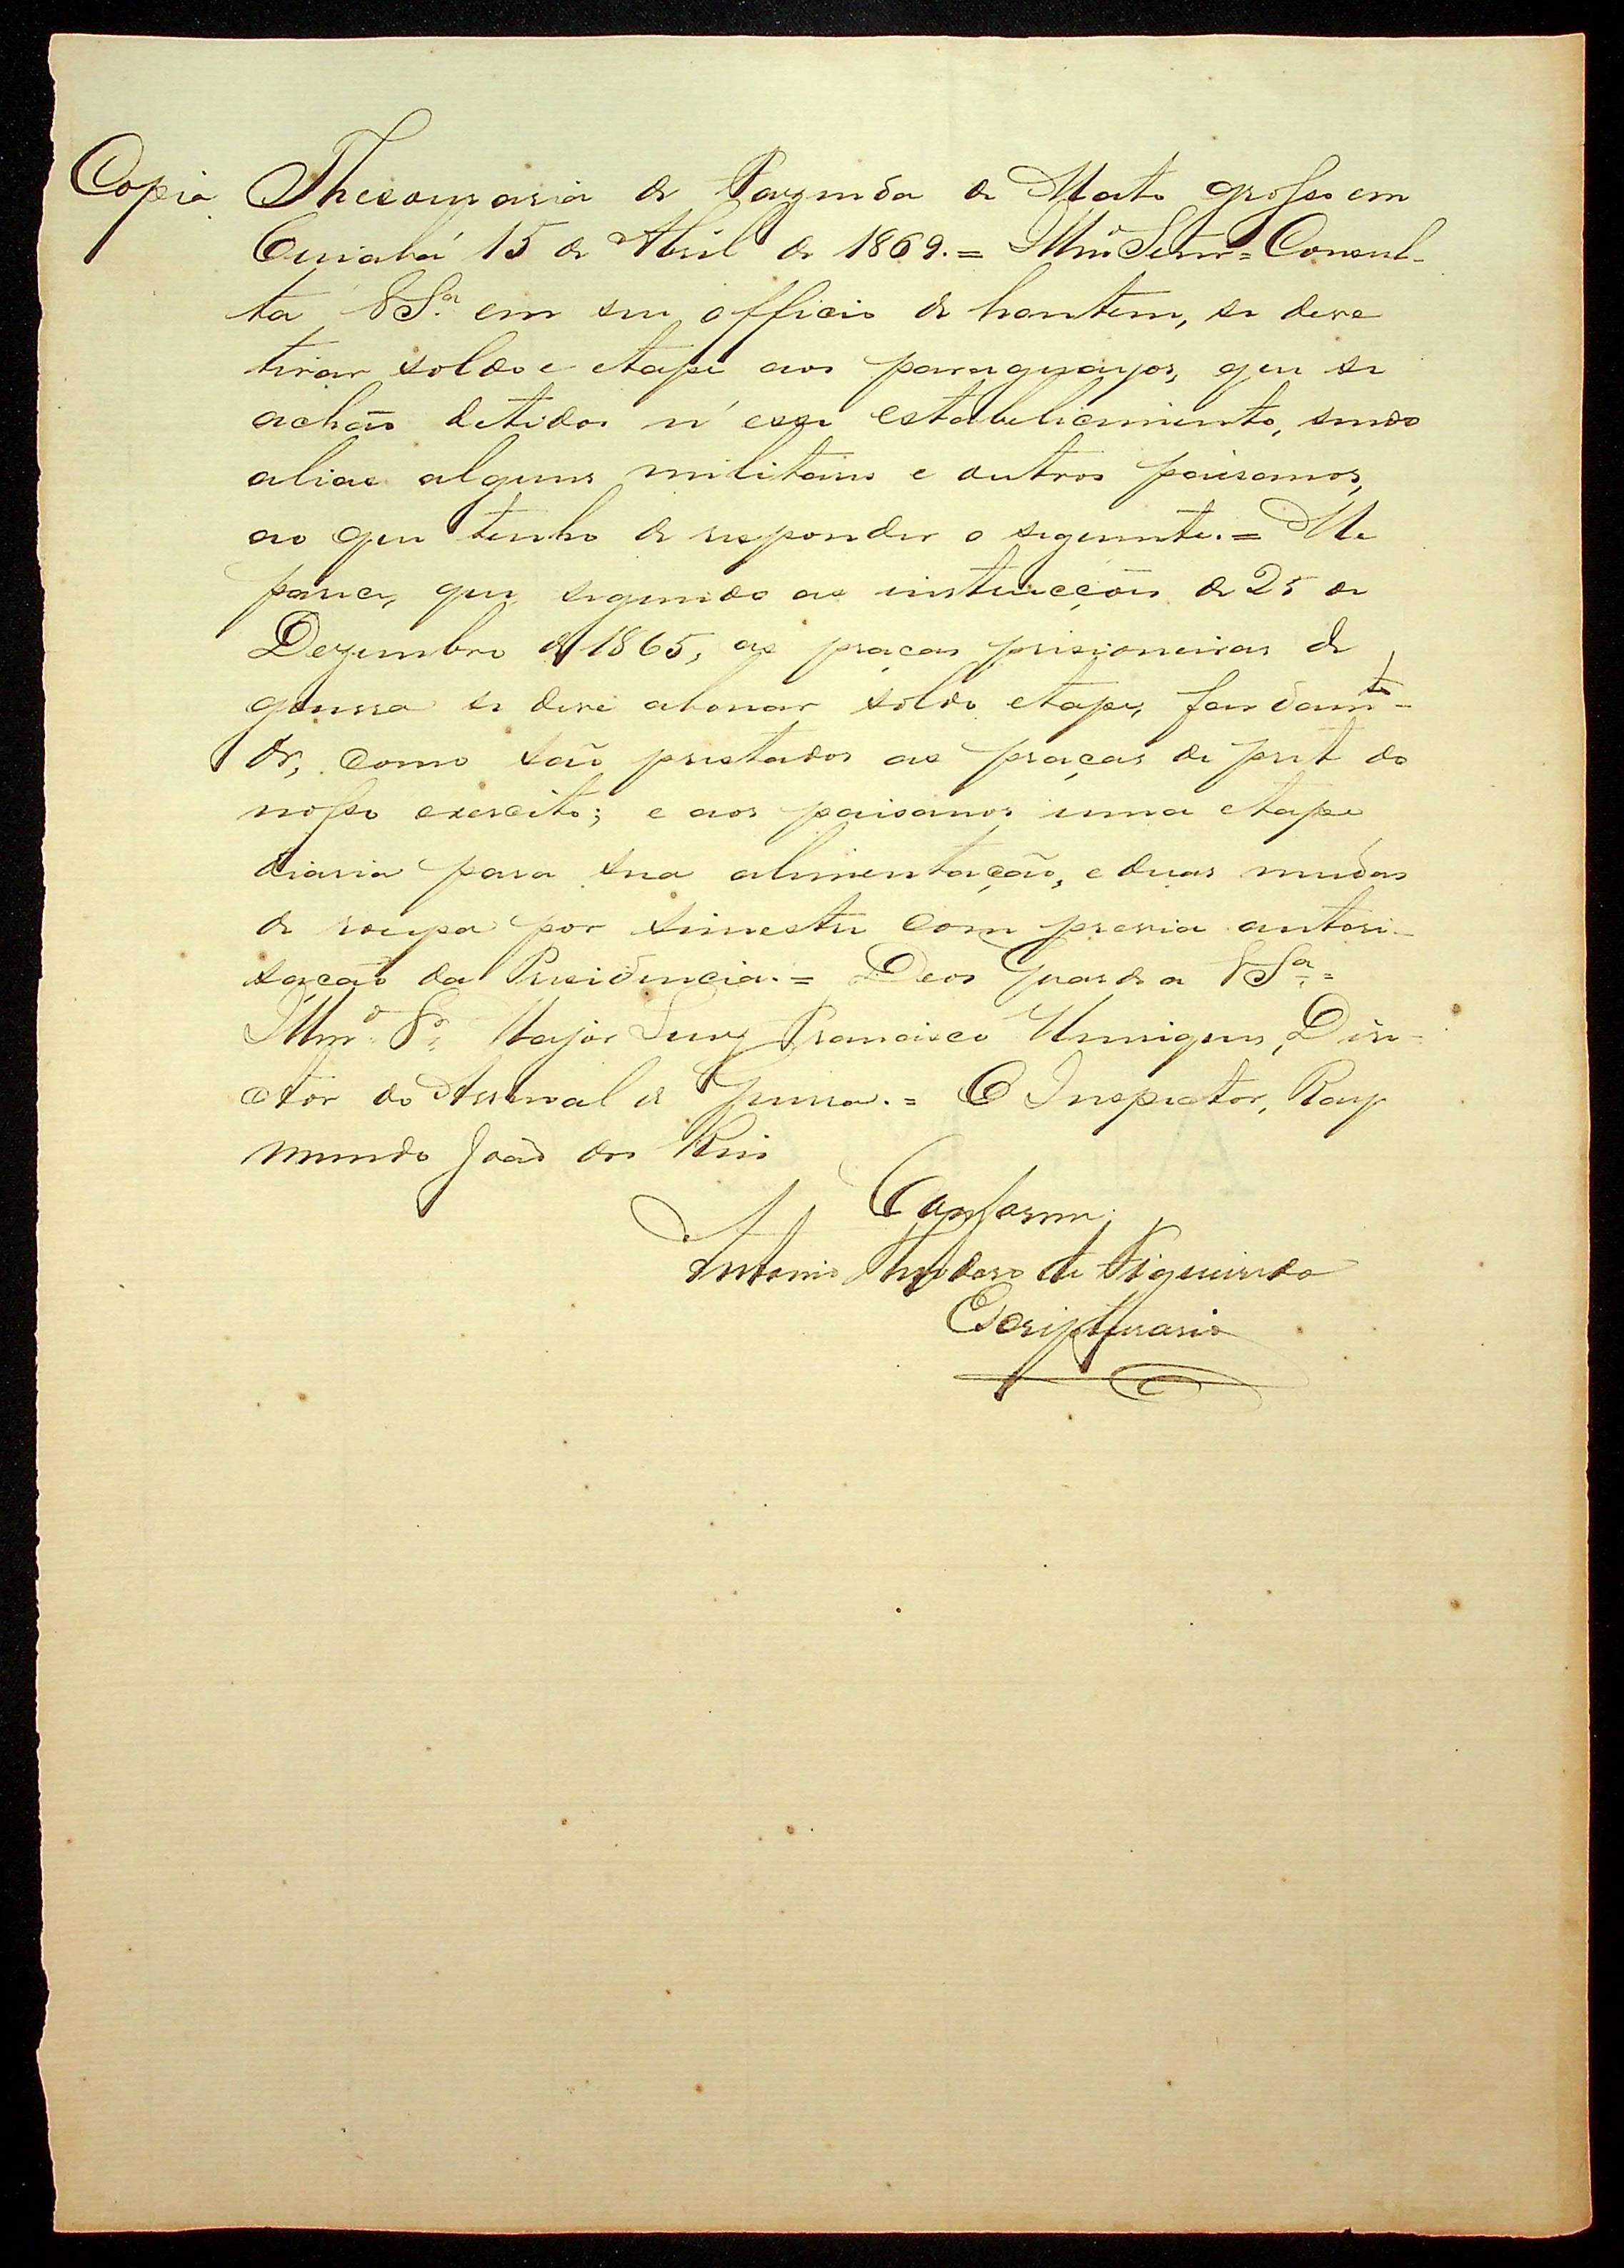 Copia Thesouraria de Fazenda de Mato grosso em
Cuiabá 15 de Abril de 1869. = Illmo Senr = Consul-
ta VSa. em seu officio de hontem, se deve
tirar soldo e etape aos paraguayos, que se
achão detidos n'esse estabelicimento, sendo
alias alguns militares e outros paisanos,
ao que tenho de responder o seguinte. = Me
parece, que segundo as instrucções de 25 de
Dezembro de 1865, as praças prisioneiras de
guerra se deve abonar soldo etape, fardamto
&, como são prestados as praças de pret do
nosso exercito; e aos paisanos uma etape
diaria para sua alimentação, e duas mudas
de roupa por simestre com previa autori-
sação da Presidencia. = Deos Guarde a VSa. =
Illmo. Sr. Major Luiz Francisco Henriques, Dire-
ctor do Arsenal de Guerra. = O Inspector, Ray
mundo João dos Reis
Conforme
Antonio Theodoro de Figueiredo
Escripturario